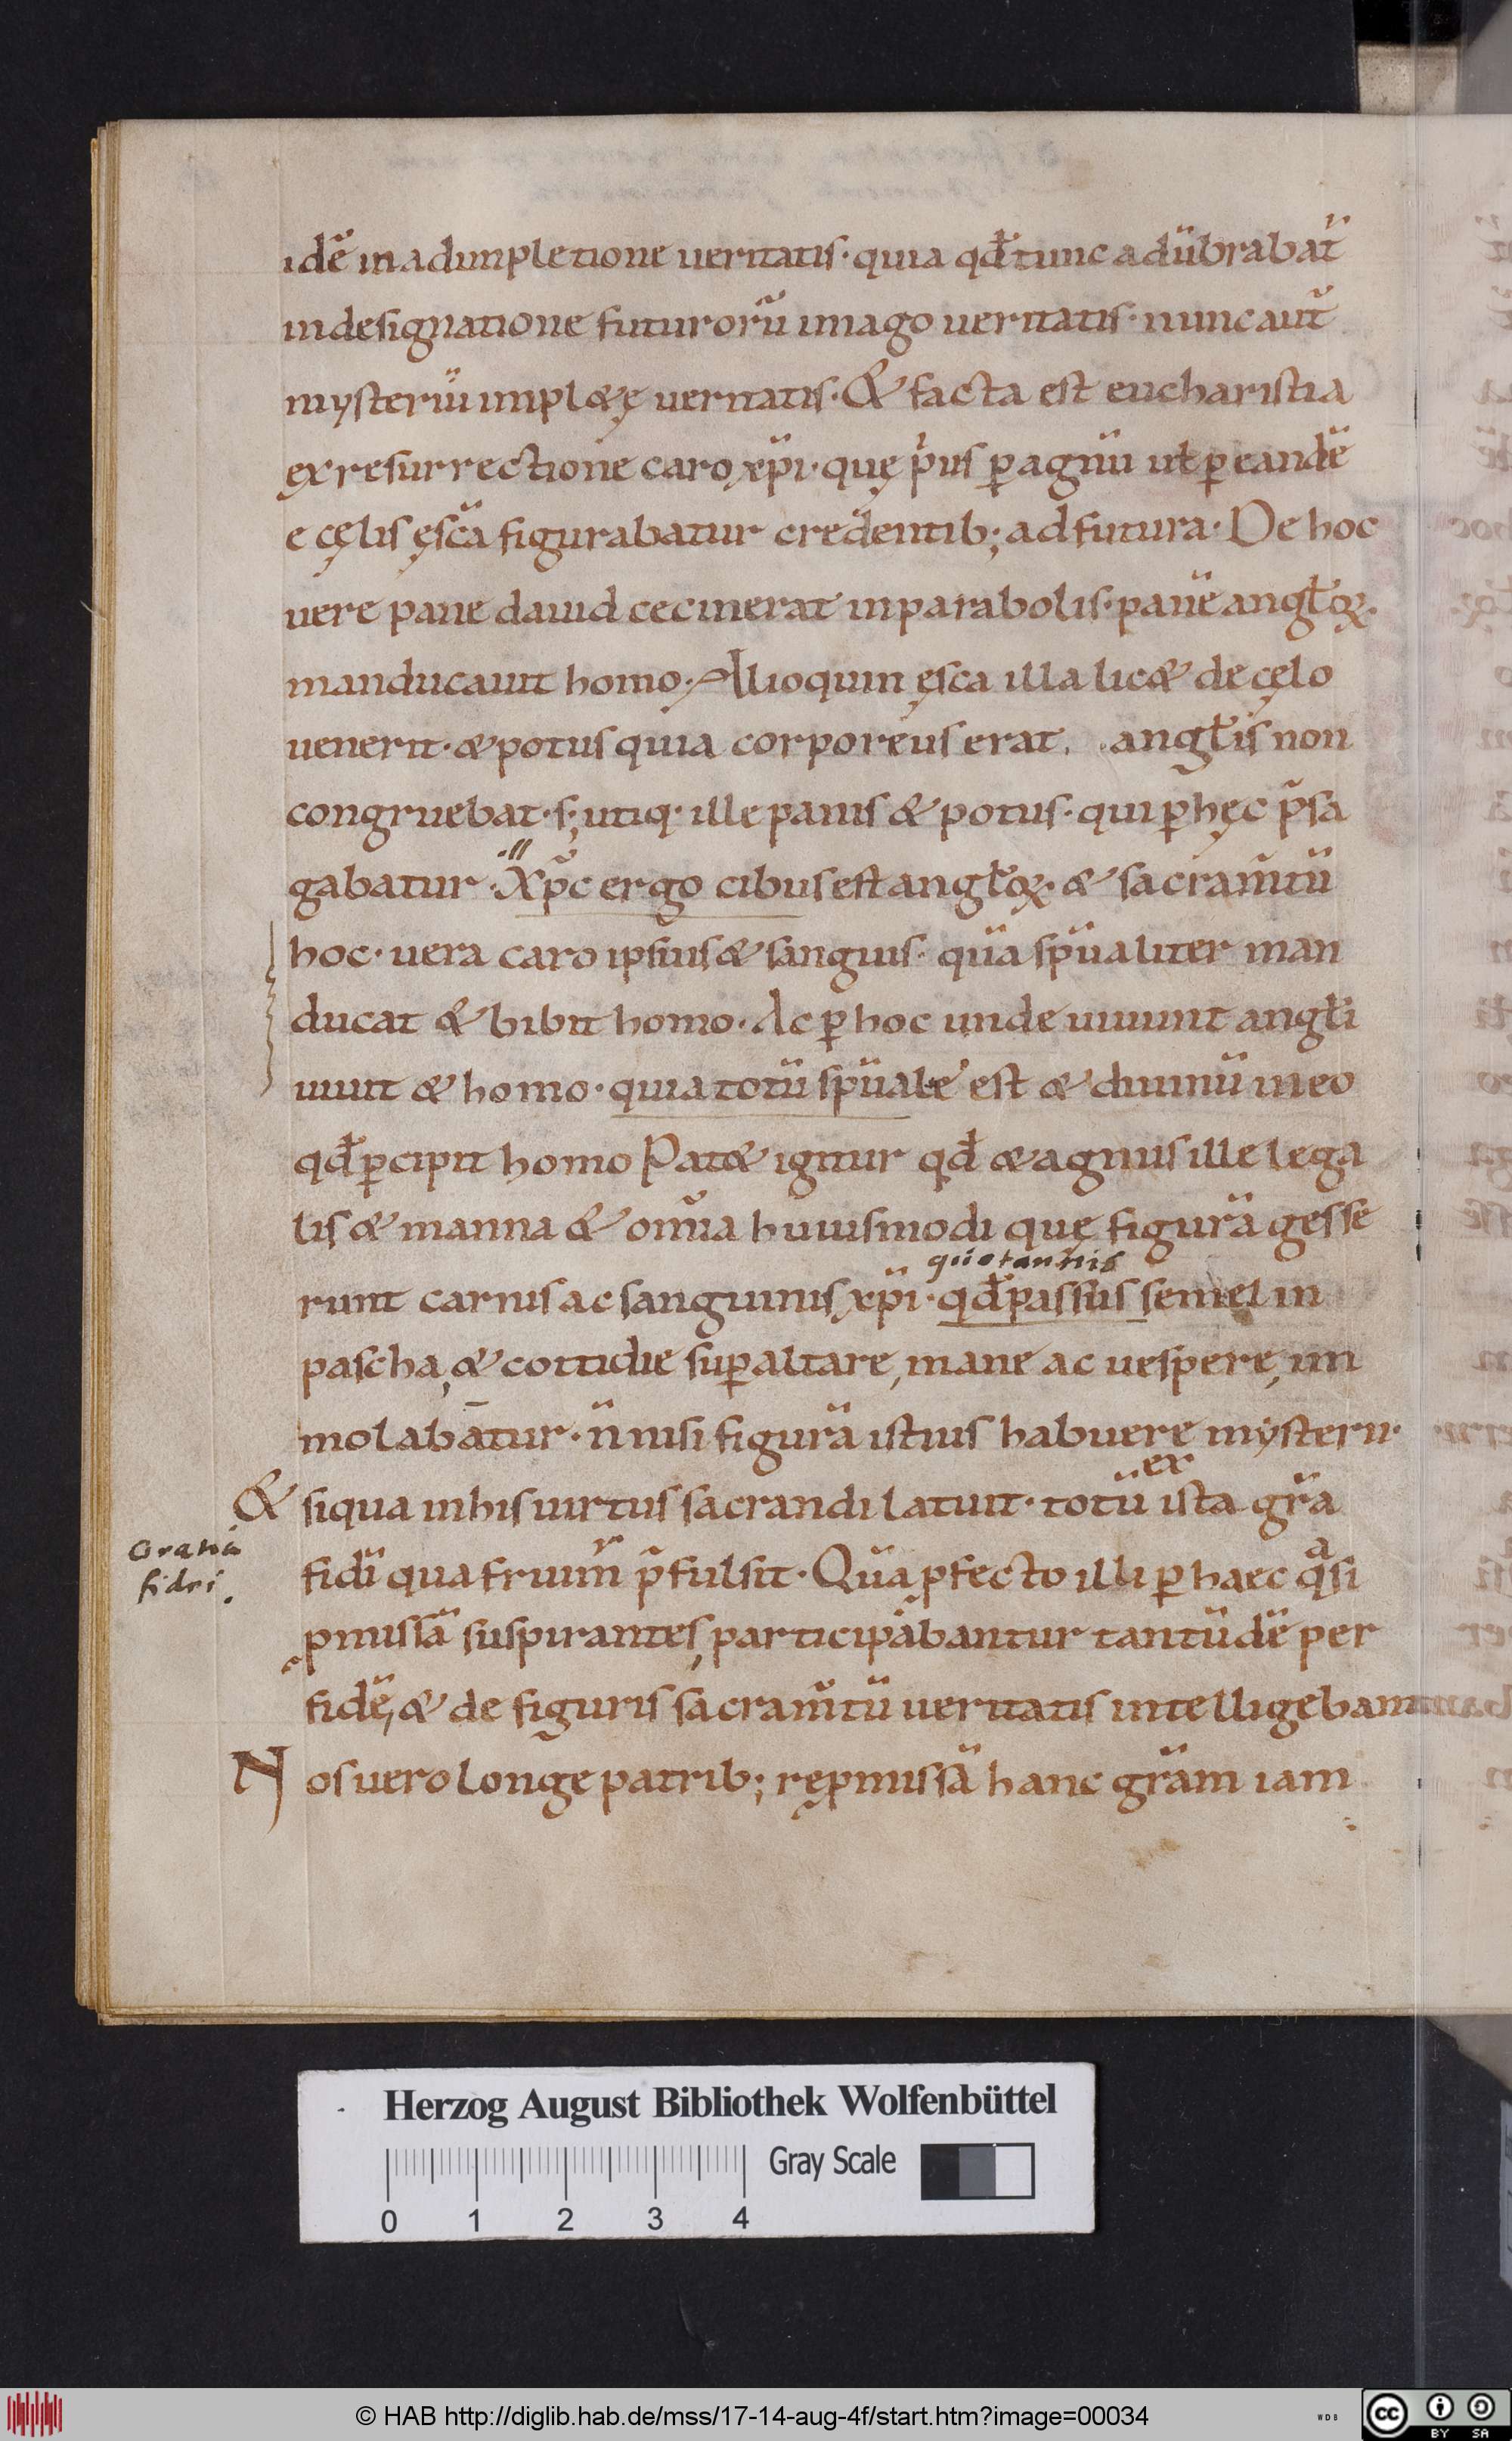 idē in adimpletione ueritatis· quia qđ tunc adūbrabat̄
in designatione futurorū imago ueritatis· nunc aut̄
mysteriū implętę ueritatis· & facta est eucharistia
ex resurrectione caro xp̄i· quę pͥus ꝑ agnū uł ꝑ eandē
e cęlis ęscā figurabatur credentib; ad futura· De hoc
uere pane dauid cecinerat in parabolis· panē angłoꝝ·
manducauit homo· Alioquin ęsca illa lic& de cęlo
uenerit· & potus quia corporeus erat, angłis non
congruebat· s; utiq· ille panis & potus· qui ꝑ hęc p̄sa
gabatur· Xp̄c ergo cibus est angłoꝝ· & sacram̄tū
hoc· uera caro ipsius & sanguis· quā sp̄ualiter man
ducat & bibit homo· Ac ꝑ hoc unde uiuunt angłi
uiuit & homo· quia totū sp̄uale est & diuinū in eo
qđ ꝑcipit homo Pat& igitur qđ & agnus ille lega
lis & manna & om̄ia huiusmodi quę figurā gesse
quotannis
runt carnis ac sanguinis xp̄i· qđ passus semel in
pascha, & cottidie suꝑ altare, mane ac uespere, im
molabatur· n̄ nisi figurā istius habuere mysterii·
ex
& siqua in his uirtus sacrandi latuit· totū ista gr̄a
Gratia
fidi qua fruim̄ p̄fulsit· Quā ꝓfecto illi ꝑ haec qͣsi
fidei.
ꝓmissā suspirantes, participabantur tantūdē per
fidē, & de figuris sacram̄tū ueritatis intelligebant
Nos uero longe patrib; reꝓmissā hanc gr̄am iam
Herzog August Bibliothek Wolfenbüttel
0 1 2 3 4 Gray Scale
© HAB http://diglib.hab.de/mss/17-14-aug-4f/start.htm?image=00034
WDB
cc BY SA